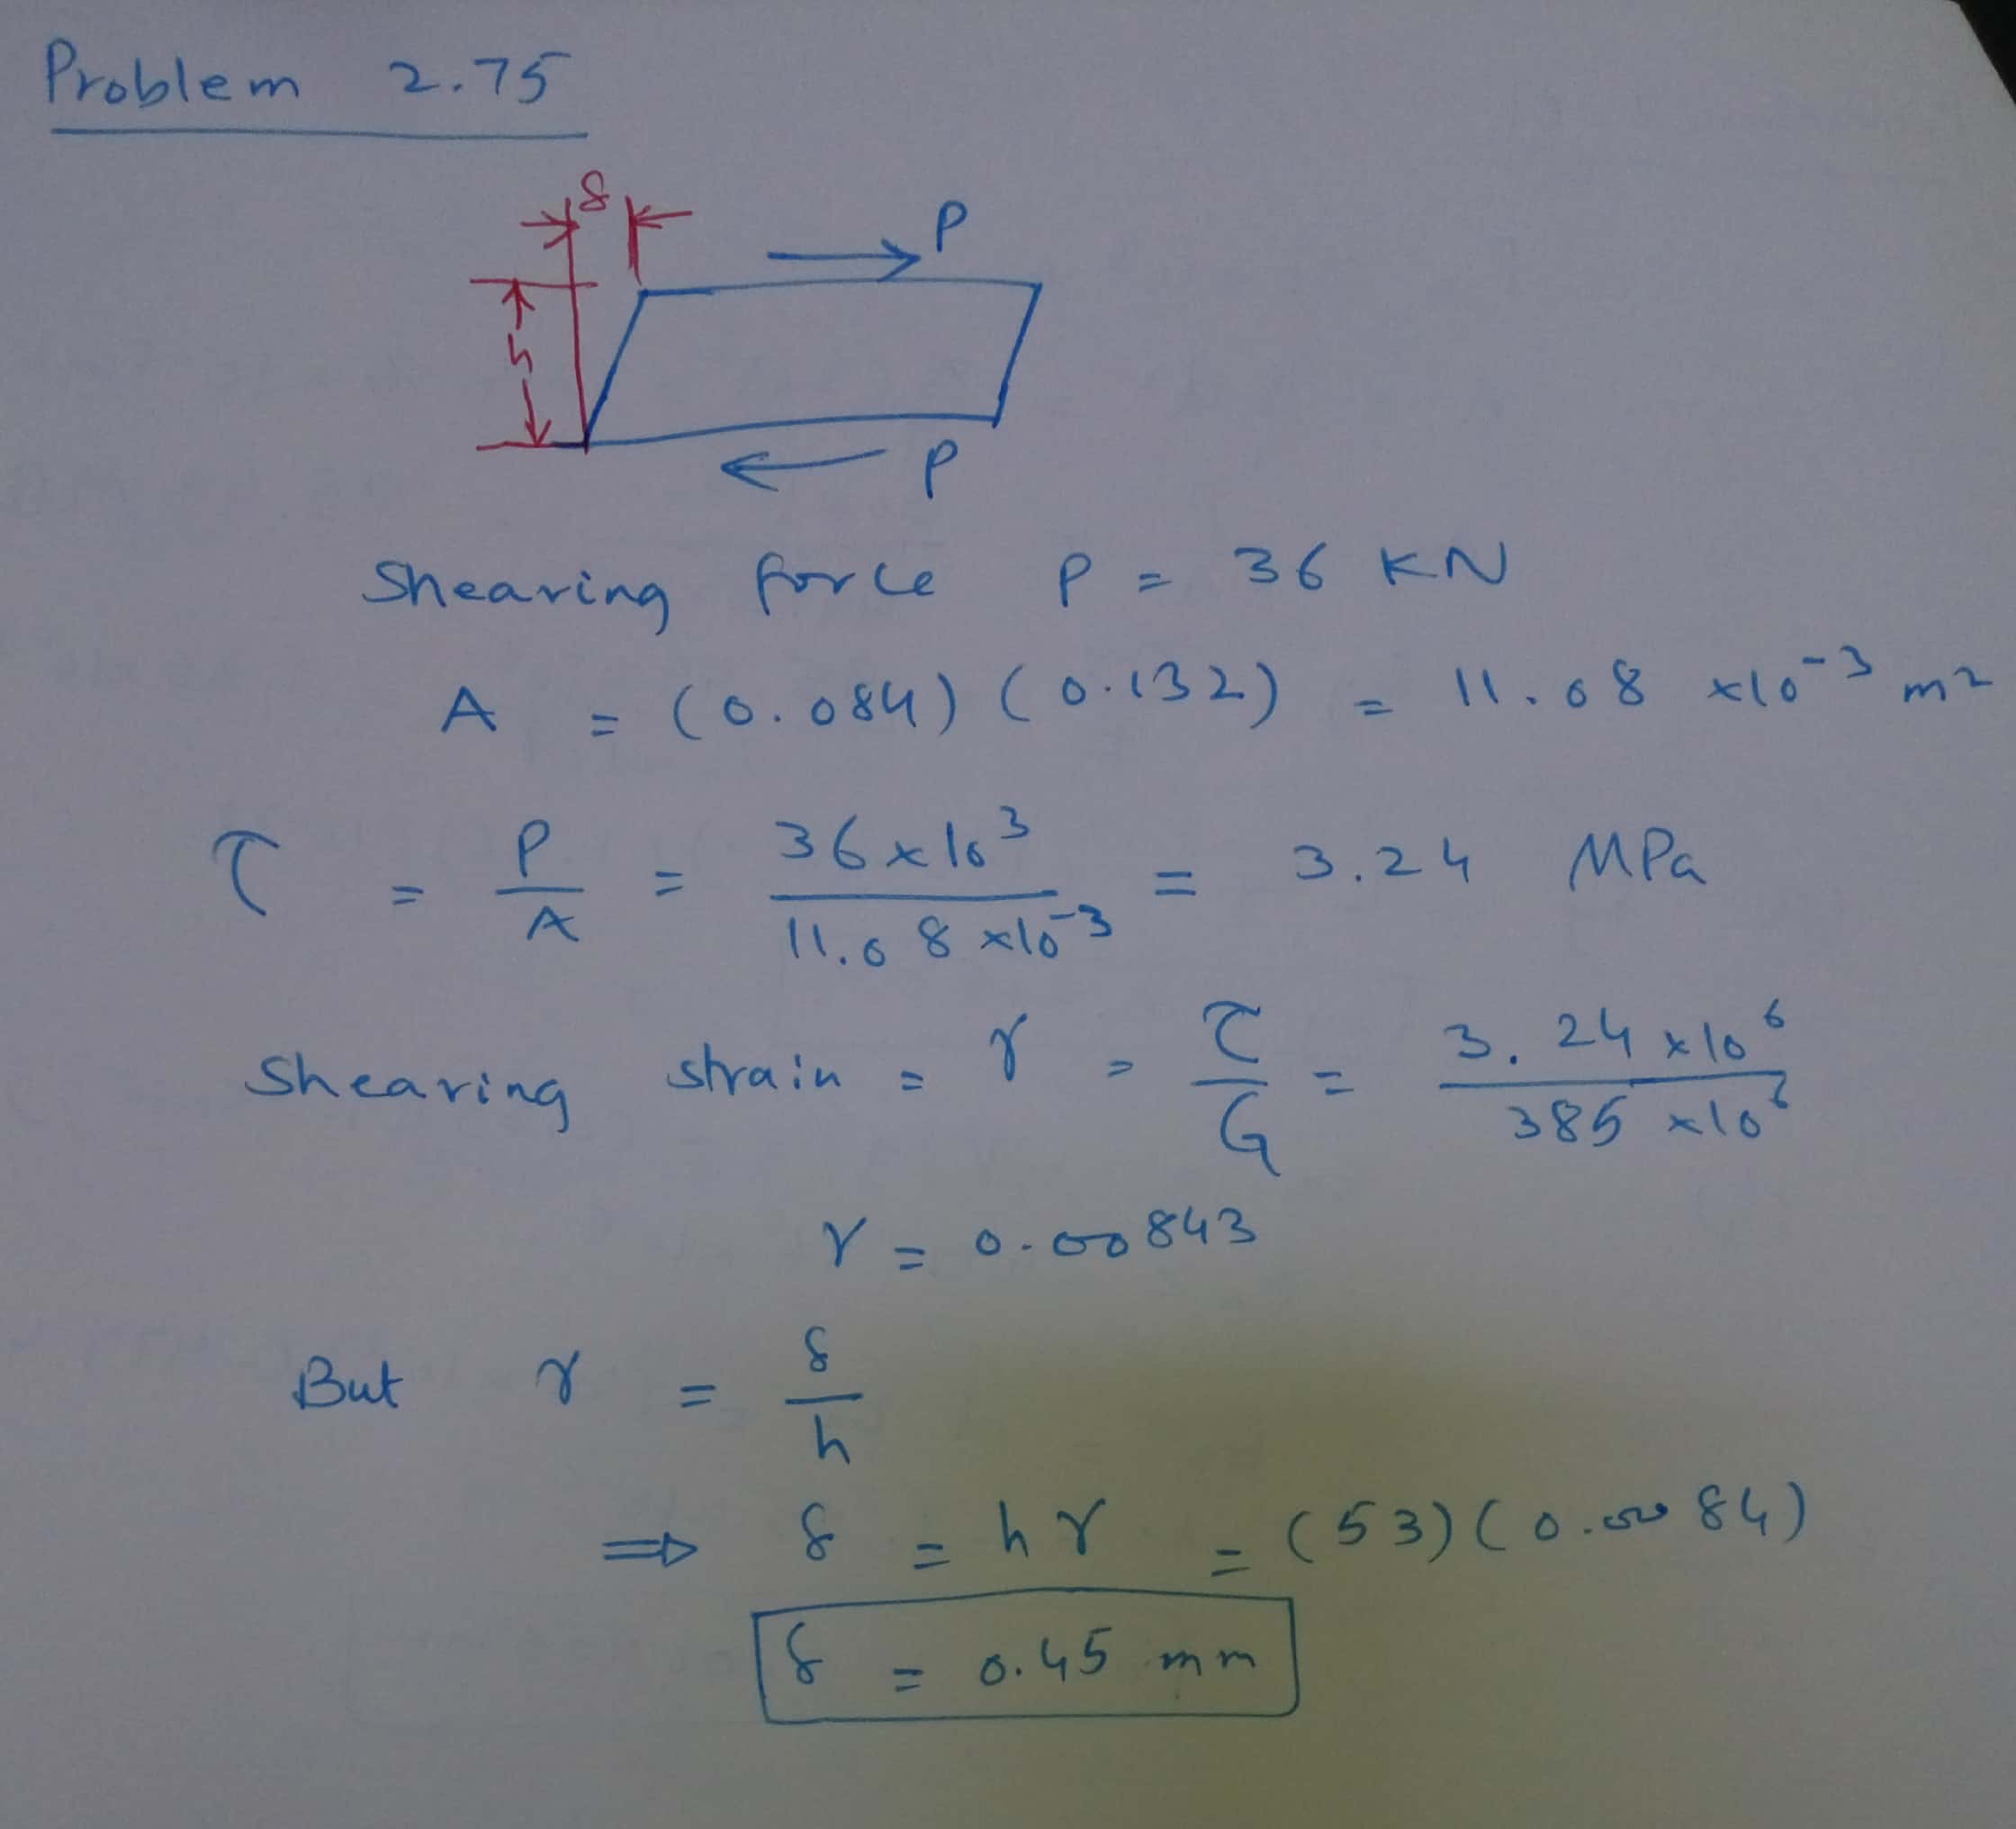 Problem 2.75
δ
P
h
P
Shearing force P = 36 KN
A = (0.084) (0.132) = 11.08 x10⁻³ m²
τ = P/A = 36x10³/11.08 x10⁻³ = 3.24 MPa
Shearing strain = γ = τ/G = 3.24 x10⁶/385 x10⁶
γ = 0.00843
But γ = δ/h
⇒ δ = hγ = (53)(0.0084)
δ = 0.45 mm